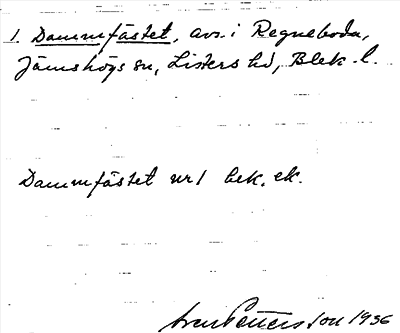 1. Dammfästet, avs. i Regneboda,
Jämshögs sn, Listers hd, Blek. l.
Dammfästet nr 1 bek. ek.
Pettersson 1936